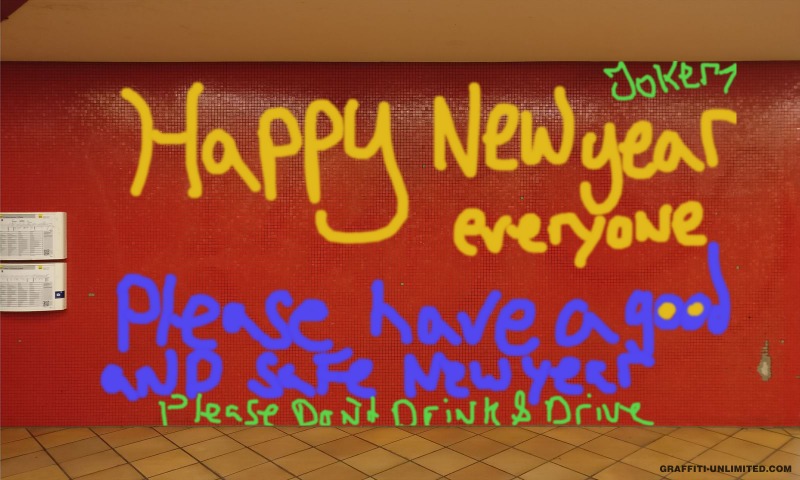 Joker
Happy New year
everyone
Please have a good
aND Safe New year
Please Don't Drink & Drive
GRAFFITI-UNLIMITED.COM